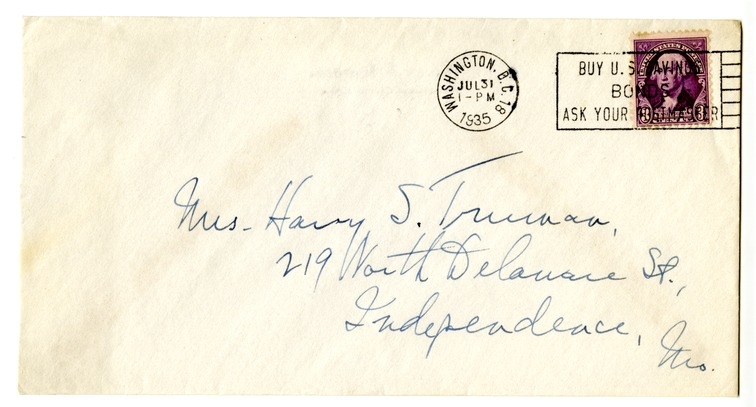 WASHINGTON, D.C. 18
JUL 31
1-PM
1935
BUY U.S. SAVINGS
BONDS
ASK YOUR POSTMASTER
Mrs. Harry S. Truman,
219 North Delaware St.,
Independence,
Mo.